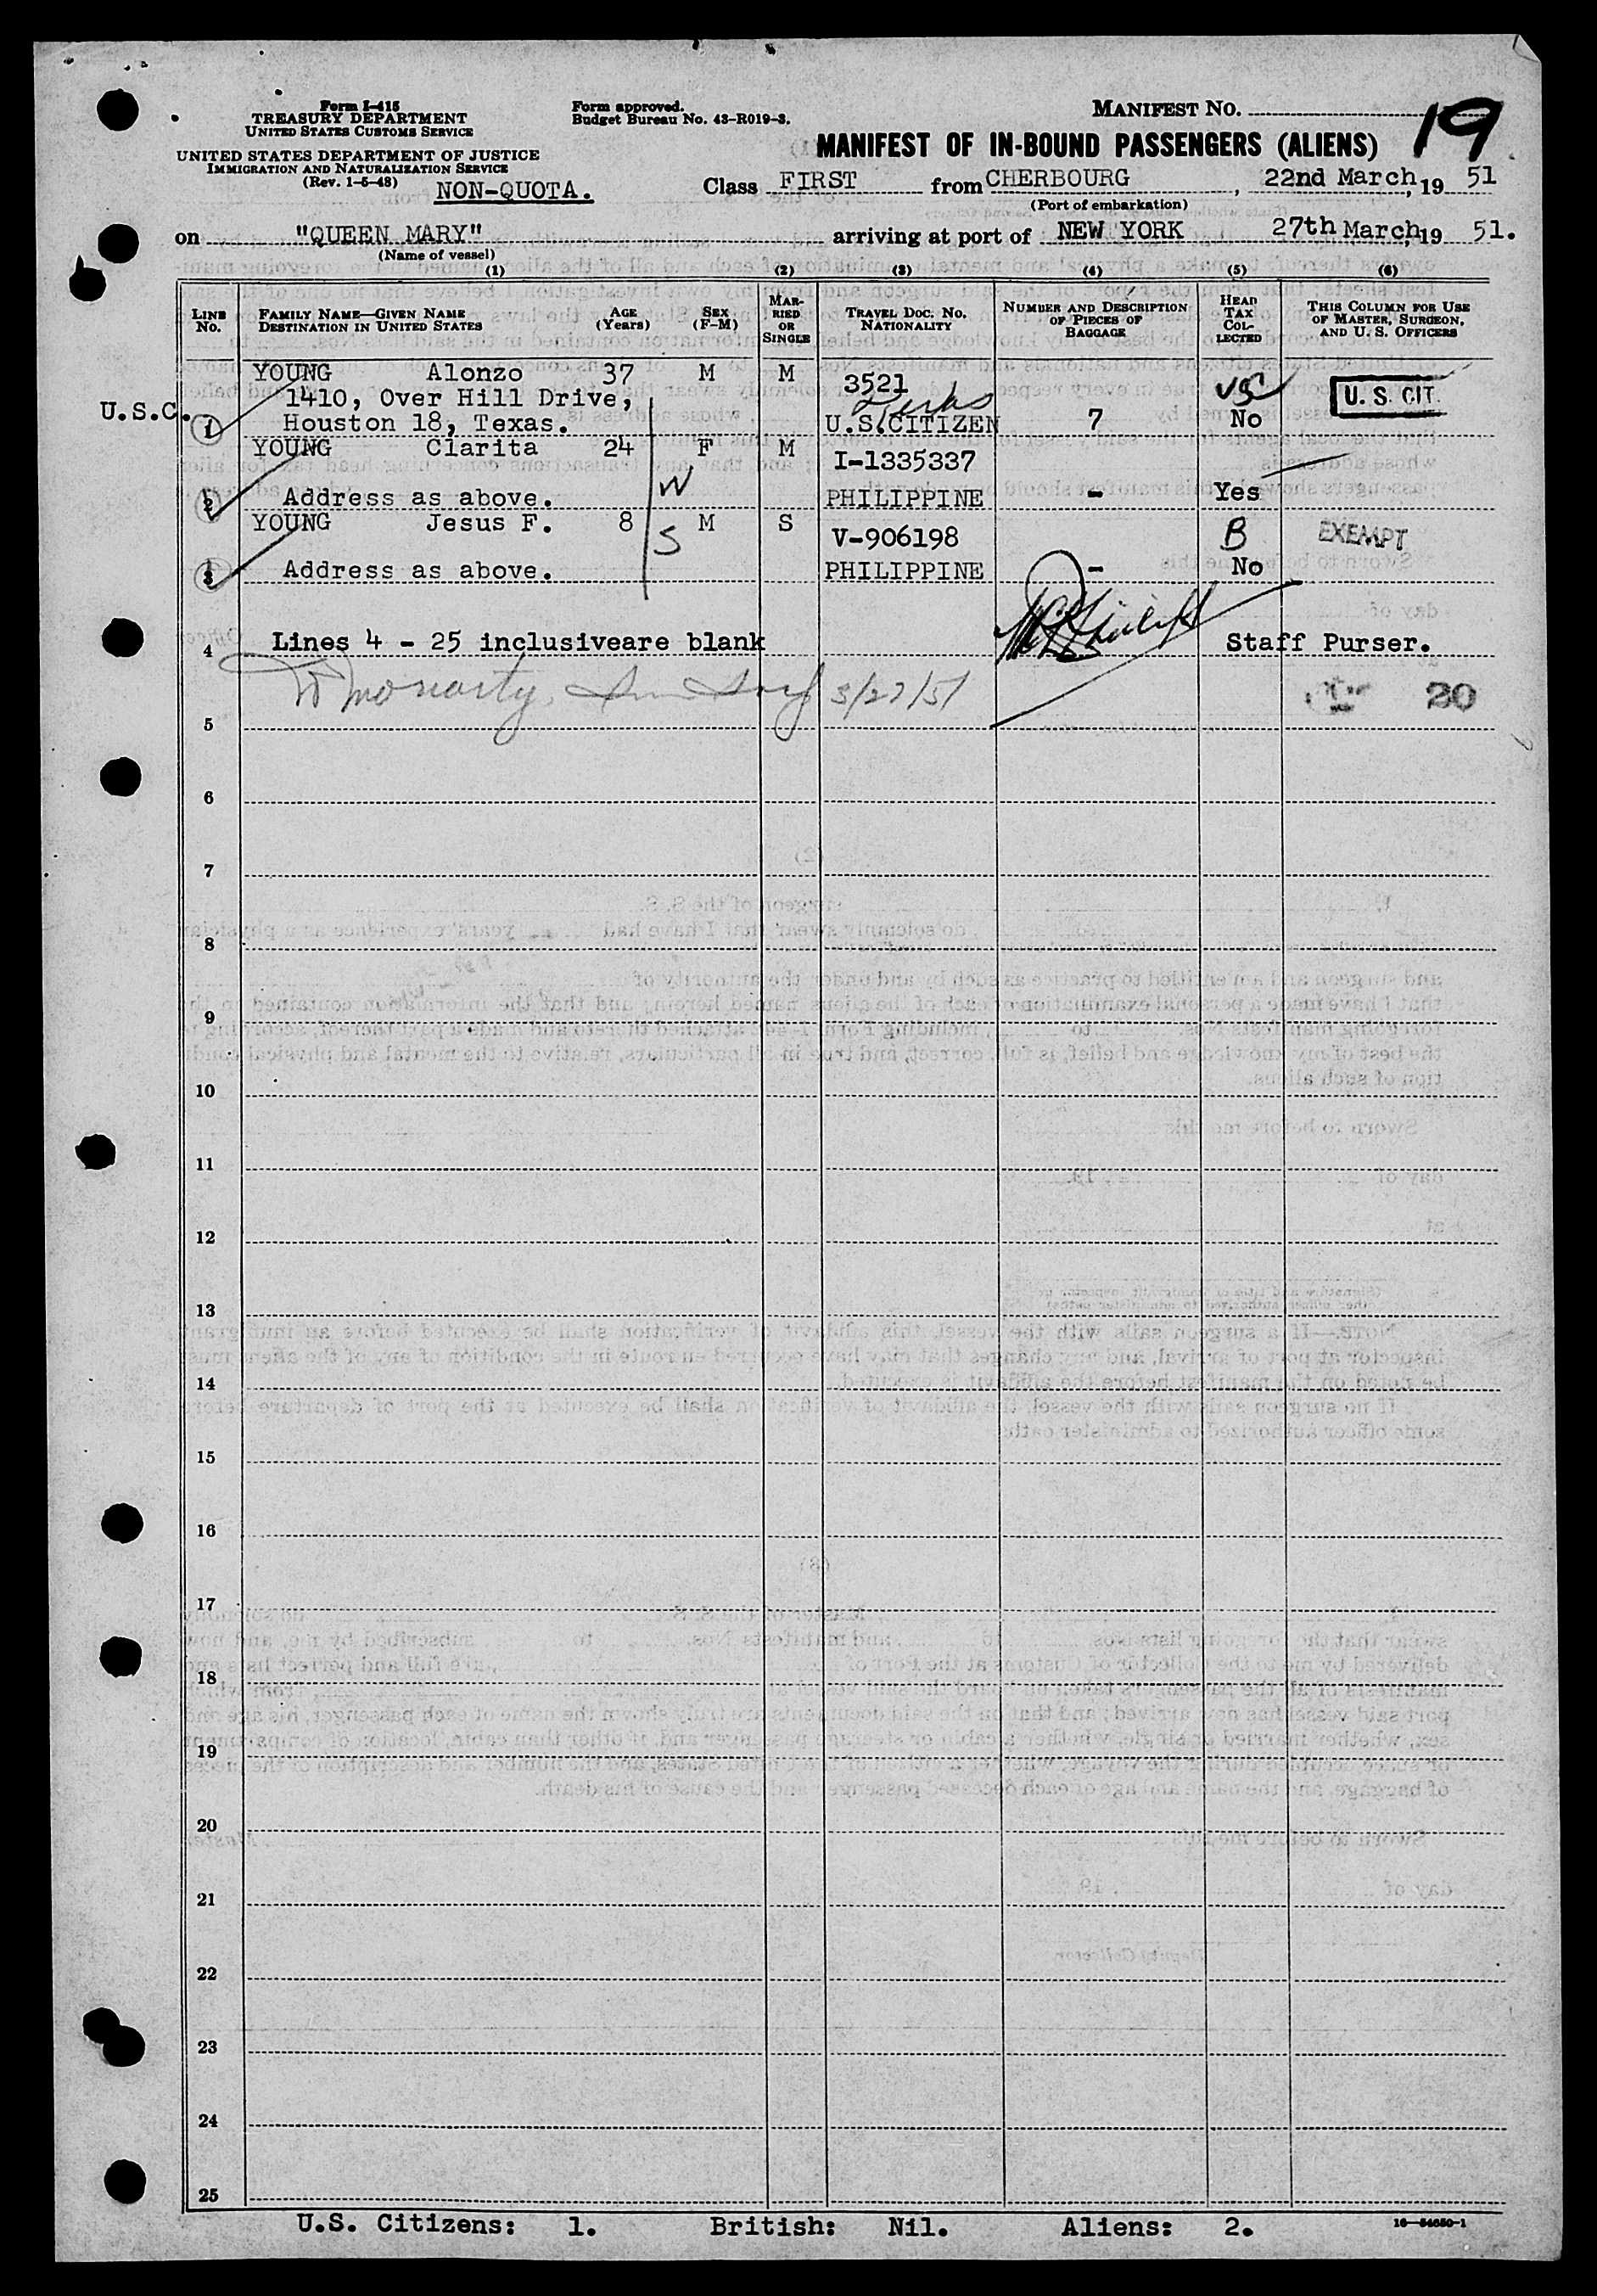 Form I-415
TREASURY DEPARTMENT
UNITED STATES CUSTOMS SERVICE
UNITED STATES DEPARTMENT OF JUSTICE
IMMIGRATION AND NATURALIZATION SERVICE
(Rev. 1-5-48)
NON-QUOTA.
Form approved.
Budget Bureau No. 43-R019-3.
MANIFEST NO.
19
MANIFEST OF IN-BOUND PASSENGERS (ALIENS)
Class FIRST from CHERBOURG, 22nd March, 19 51
(Port of embarkation)
on "QUEEN MARY" arriving at port of NEW YORK 27th March, 19 51.
(Name of vessel)
(1) (2) (3) (4) (5) (6)
LINE No. FAMILY NAME—GIVEN NAME DESTINATION IN UNITED STATES AGE (Years) SEX (F-M) MARRIED OR SINGLE TRAVEL DOC. NO. NATIONALITY NUMBER AND DESCRIPTION OF PIECES OF BAGGAGE HEAD TAX COLLECTED THIS COLUMN FOR USE OF MASTER, SURGEON, AND U. S. OFFICERS
YOUNG Alonzo 37 M M 3521
1410, Over Hill Drive, U. S. CIT.
U.S.C. 1 Houston 18, Texas. U.S. CITIZEN 7 No
YOUNG Clarita 24 F M I-1335337
2 Address as above. W PHILIPPINE - Yes
YOUNG Jesus F. 8 S M S V-906198 B EXEMPT
3 Address as above. PHILIPPINE - No
4 Lines 4 - 25 inclusiveare blank Staff Purser.
Moriarty 3/27/51 20
5
6
7
8
9
10
11
12
13
14
15
16
17
18
19
20
21
22
23
24
25
U.S. Citizens: 1. British: Nil. Aliens: 2.
16—54650-1